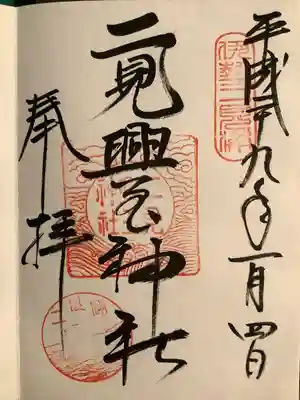 平成二十九年一月四日
伊勢二見浦
二見興玉神社
奉拝